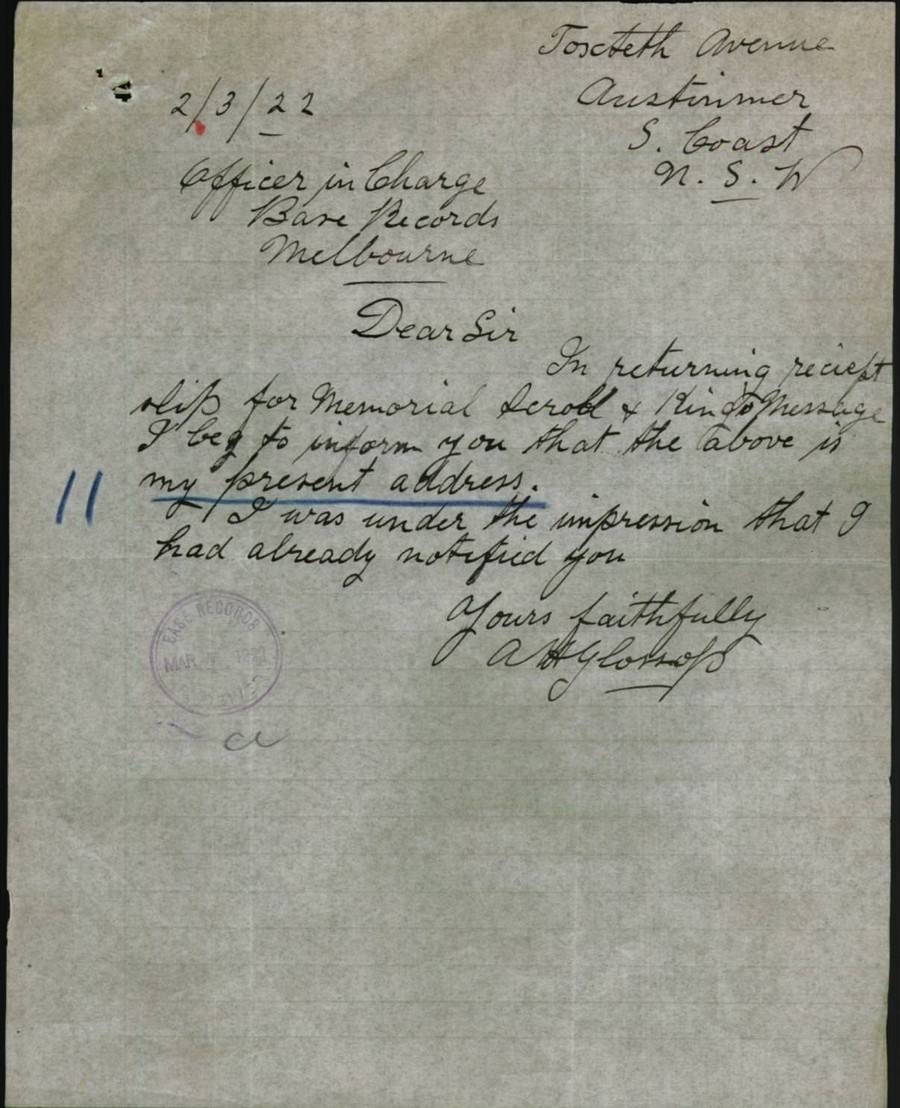 Toxteth Avenue
Austinmer
S. Coast
N. S. W
2/3/22
Officer in Charge
Base Records
Melbourne
Dear Sir
In returning reciept
slip for Memorial Scroll & King's Message
I beg to inform you that the above is
my present address.
I was under the impression that I
had already notified you
Yours faithfully
A H Glossop
BASE RECORDS
MAR